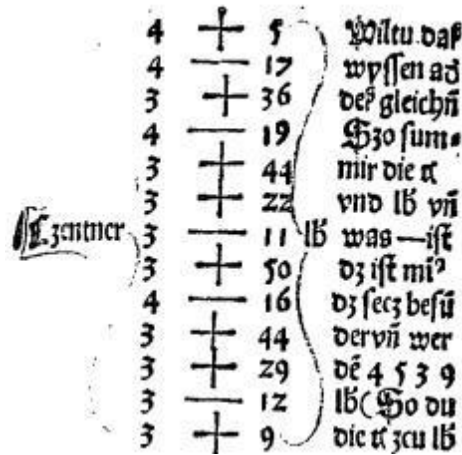 4 + 5 Wiltu daß
4 — 17 wyſſen ad
3 + 36 deß gleichn̄
4 — 19 Szo ſum⸗
3 + 44 mir die
3 + 22 vnd lb vn̄
Zentner 3 — 11 lb was — iſt
3 + 50 dz iſt mi
4 — 16 dz ſecz beſū
3 + 44 der vn̄ wer
3 + 29 dē 4 5 3 9
3 — 12 lb ( So du
3 + 9 die zcu lb